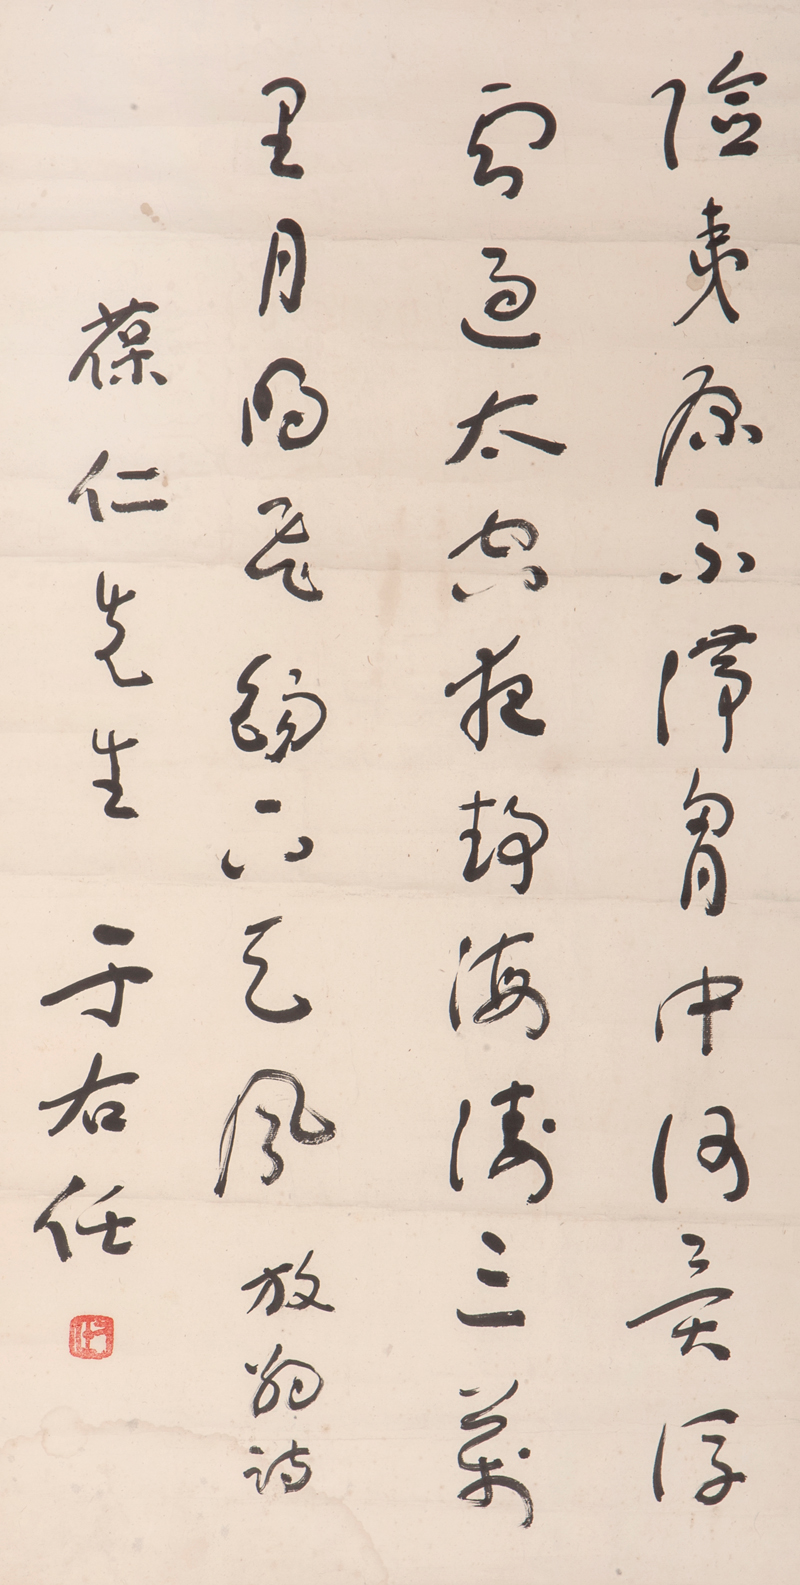 險夷原不滯胷中何異浮
雲過太空夜靜海濤三萬
里月明飛錫下天風 放翁詩
葆仁先生 于右任